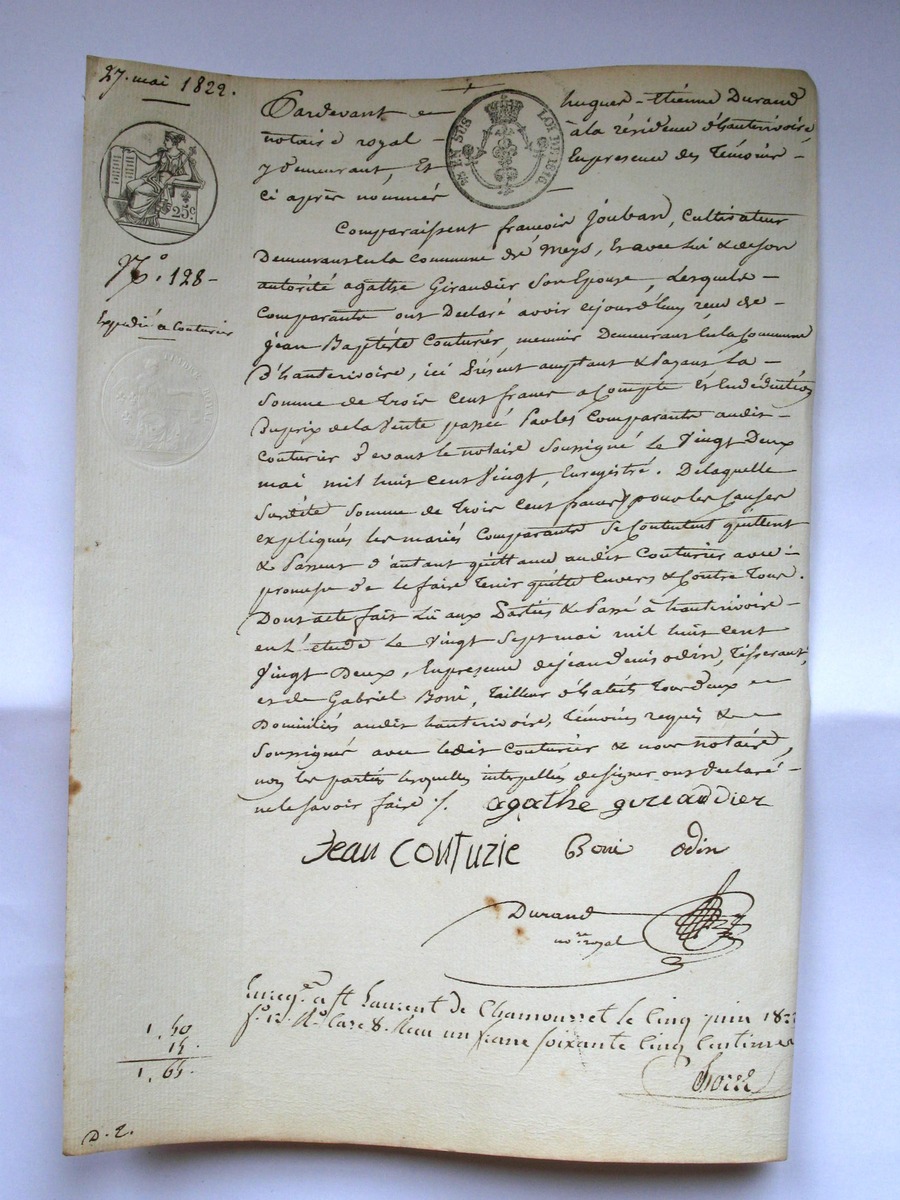 27. mai 1822.
Pardevant Me hugues-Etienne Durand
notaire royal à la résidence d'hauterivoire
y demeurant, Et En presence des Témoins
ci après nommés
EN SUS LOI DE 1816
25c.
No. 128
Expédié a Couturier
Comparaissent françois Jouban, Cultivateur
Demeurant En la Commune de Meys, Et avec lui & de son
autorité agathe Giraudier Son Epouse, Lesquels
Comparants ont Déclaré avoir cejourd'huy reçu de
jean Baptiste Couturier, meunier Demeurant En la Commune
D'hauterivoire, ici Présent acceptant & Payant La
Somme de Trois Cent francs a Compte Et En déduction
Du prix de la Vente passée Par les Comparants audit
Couturier Devant le notaire Soussigné le Vingt Deux
mai mil huit cent Vingt, Enregistré. De laquelle
Susdite Somme de Trois Cent francs pour les Causes
expliqués les mariés Comparants Se Contentent quittent
& Passent d'autant quittance audit Couturier avec
promesse De le faire Tenir quitte Envers & Contre Tous.
Dont acte fait Lu aux Parties & Passé à hauterivoire
en L'étude Le Vingt Sept mai mil huit cent
Vingt Deux, En presence de jean denis odin, Tisserant,
et de Gabriel Boni, Tailleur d'habits Tous Deux
Domiciliés audit hauterivoire, Témoins requis &
Soussignés avec ledit Couturier & nous notaire,
non les parties lesquelles interpellés de signer ont declaré
ne le Savoir faire /. agathe giraudier
Jean COUTURIE Boni odin
Durand
nore royal
Enregé. a St Laurent de Chamousset le Cinq juin 182
fo. 12 Ro Case 8. Reçu un franc soixante Cinq Centimes
1, 50
15.
1, 65.
D. 2.